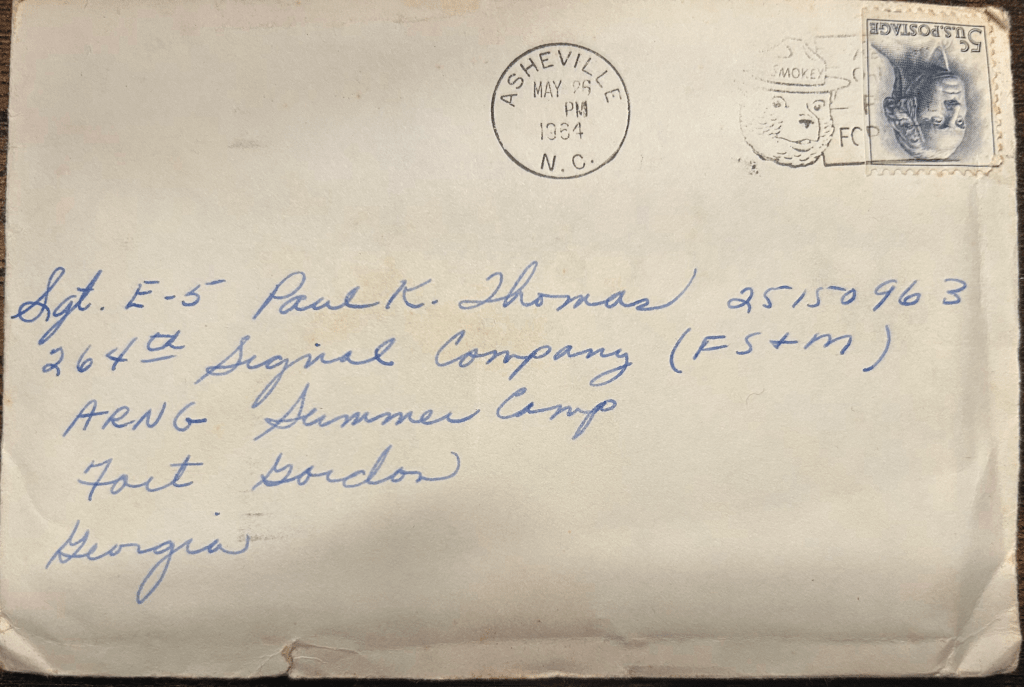 ASHEVILLE
MAY 26
PM
1964
N.C.
SMOKEY
5c
U.S. POSTAGE
Sgt. E-5 Paul K. Thomas 25150963
264th Signal Company (FS+M)
ARNG Summer Camp
Fort Gordon
Georgia